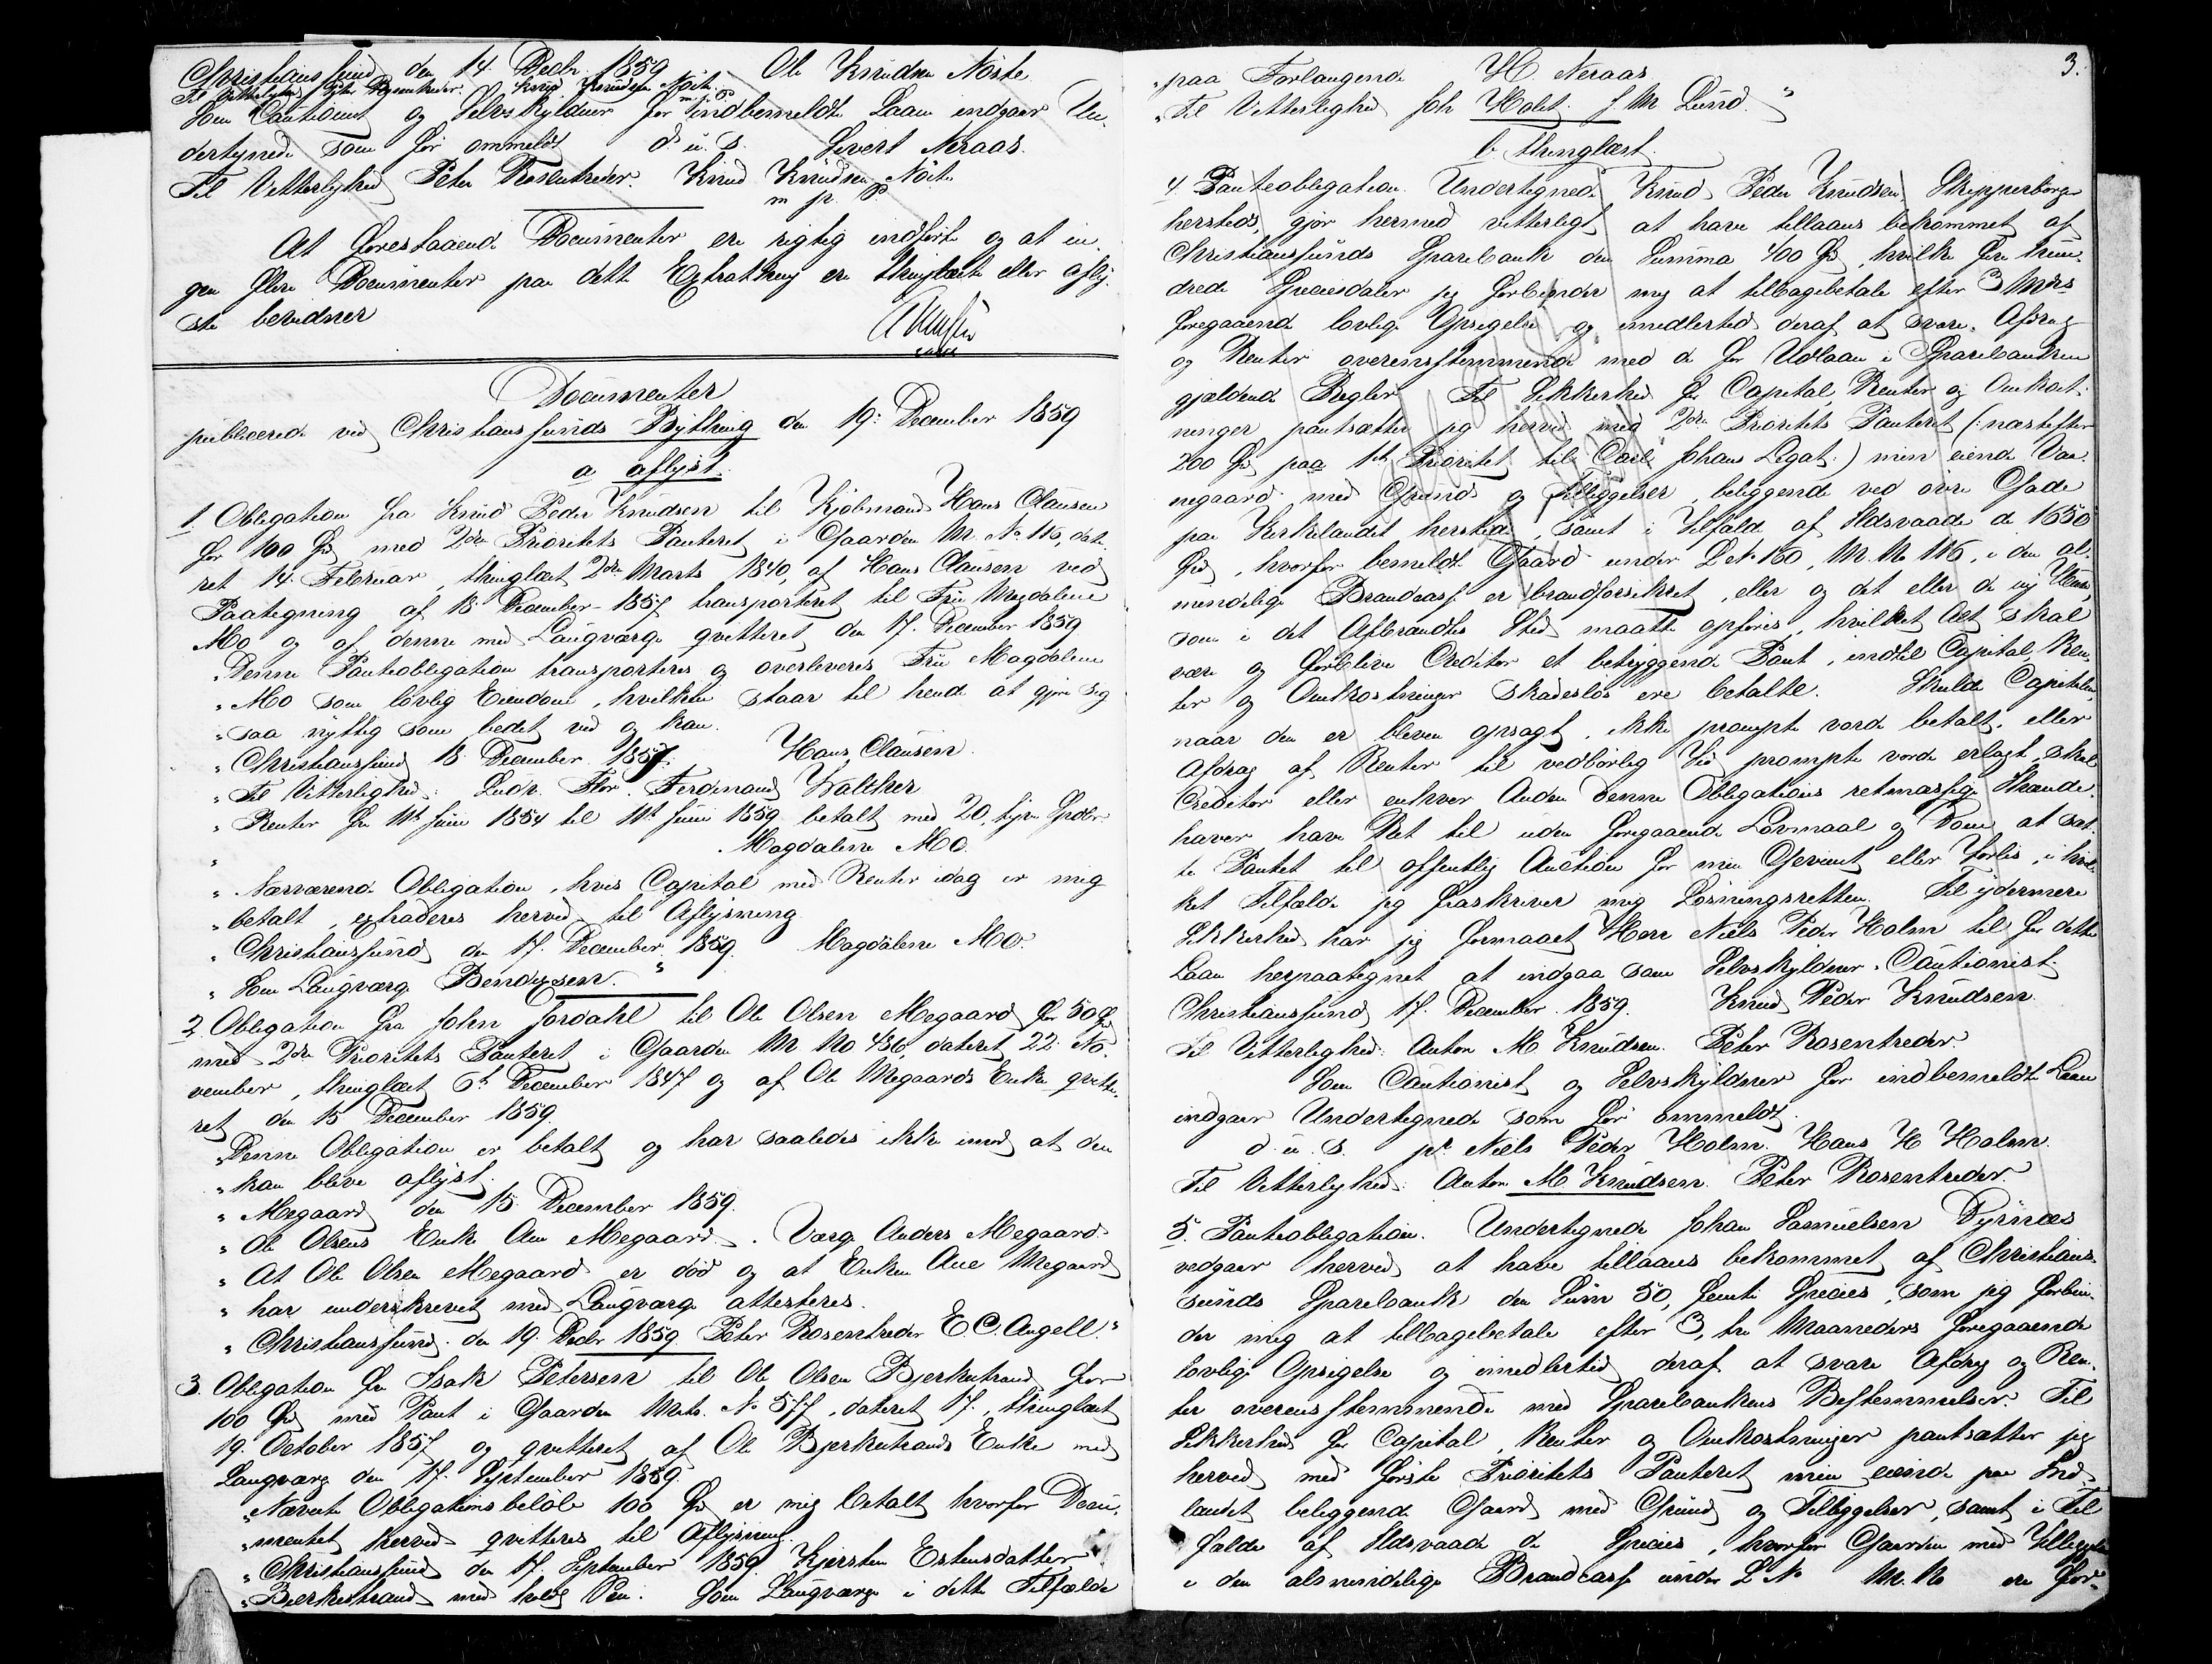 Christiansund den 14 Decbr. 1859. Ole Knudsen Nöste
Til Vitterlighed Peter Rosentreder. Knud Knudsen Nöste
m. p. P.
Som Cautionist og Selvskyldner for indbemeldte Laan indgaar Un-
dertegnede som før ommeldt d. u. S. Sivert Neraas.
Til Vitterlighed Peter Rosentreder. Knud Knudsen Nöste
m. p. P.
At forestaaende Documenter ere rigtig indførte og at in-
gen flere Documenter paa dette Extrathing ere thinglæste eller afly-
ste bevidner
Documenter
publicerede ved Christiansunds Bything den 19. December 1859
a aflyst.
1. Obligation fra Knud Peder Knudsen til Kjøbmand Hans Clausen
for 100 Spd. med 2den Prioritets Panteret i Gaarden M. No. 116, date-
ret 14. Februar, thinglæst 2den Marts 1840, af Hans Clausen ved
Paategning af 18 December 1857 transporteret til Fru Magdalene
Mo og af denne med Laugværge qvitteret den 17. December 1859
"Denne Panteobligation transporteres og overleveres Fru Magdalene
"Mo som lovlig Eiendom, hvilken staar til hende at gjøre sig
"saa nyttig som bedst ved og kan.
"Christiansund 18 December 1857. Hans Clausen.
"Til Vitterlighed: Ludv. Flor. Ferdinand Walther
"Renter fra 11te Juni 1854 til 11te Juni 1859 betalt med 20, tyve Spdlr
" Magdalene Mo.
"Nærværende Obligation, hvis Capital med Renter idag er mig
"betalt, extraderes herved til Aflysning
"Christiansund den 17. December 1859. Magdalene Mo.
"Som Laugværge Bendixsen."
2. Obligation fra John Jordahl til Ole Olsen Megaard for 50 Spd
med 2den Prioritets Panteret i Gaarden M No 436, dateret 22. No-
vember, thinglæst 6te December 1847 og af Ole Megaards Enke qvitte-
ret den 15 December 1859.
"Denne Obligation er betalt og har saaledes ikke imod at den
"kan blive aflyst.
"Megaard den 15. December 1859.
"Ole Olsens Enke Ane Megaard. Værge Anders Megaard.
"At Ole Olsen Megaard er død og at Enken Ane Megaard
"har underskrevet med Laugværge attesteres.
"Christiansund den 19. Decbr 1859. Peter Rosentreder E C. Angell."
3. Obligation fra Isak Petersen til Ole Olsen Bjerkestrand for
100 Spd med Pant i Gaarden Matr. No 577, dateret 17., thinglæst
19. October 1857 og qvitteret af Ole Bjerkestrands Enke med
Laugværge den 17. September 1859.
"Nævnte Obligations beløb 100 Spd er mig betalt hvorfor Docu-
"mentet herved qvitteres til Aflysning.
"Christiansund den 17. September 1859. Kjersten Estensdatter
"Bjerkestrand med holdt Pen. Som Laugværge i dette Tilfælde
3.
"paa Forlangende H. Neraas
"Til Vitterlighed Joh Holst. J. M Lund."
b. thinglæst.
4. Panteobligation. Undertegnede Knud Peder Knudsen, Skipperborger
hersteds, gjør hermed vitterligt at have tillaans bekommet af
Christiansunds Sparebank den Summa 400 Spd, hvilke fire hun-
drede Speciesdaler jeg forbinder mig at tilbagebetale efter 3 Mdrs
foregaaende lovlige Opsigelse og imidlertid deraf at svare Afdrag
og Renter overensstemmende med de for Udlaan i Sparebanken
gjældende Regler. Til Sikkerhed for Capital, Renter og Omkost-
ninger pantsætter jeg herved med 2den Prioritets Panteret (: næstefter
200 Spd paa 1ste Prioritet til Carl Johans Legat :) min eiende Vaa-
negaard med Grund og Tilliggelser, beliggende ved övre Gade
paa Kirkelandet hersteds, samt i Tilfælde af Ildsvaade de 1650
Spd, hvorfor bemeldte Gaard under L. No. 160, M. No 116, i den al-
mindelige Brandcasse er brandforsikret, eller og det eller de nye Huse,
som i det Afbrændtes Sted maatte opføres, hvilket Alt skal
være og forblive Creditor et betryggende Pant, indtil Capital, Ren-
ter og Omkostninger skadesløs ere betalte. Skulde Capitalen,
naar den er bleven opsagt, ikke prompte vorde betalt, eller
Afdrag af Renter til vedbørlig Tid prompte vorde erlagt, skal
Creditor eller enhver Anden denne Obligations retmæssige Ihænde-
haver have Ret til uden foregaaende Lovmaal og Dom at sæt-
te Pantet til offentlig Auction for min Gevinst eller Forlis, i hvil-
ket Tilfælde jeg fraskriver mig Løsningsretten. Til ydermere
Sikkerhed har jeg formaaet Herr Niels Peder Holm til for dette
Laan herpaategnet at indgaa som Selvskyldner-Cautionist.
Christiansund 17. December 1859. Knud Peder Knudsen
Til Vitterlighed: Anton M Knudsen. Peter Rosentreder.
Som Cautionist og Selvskyldner for indbemeldte Laan
indgaar Undertegnede som før ommeldt.
d. u. S. pr. Niels Peder Holm. Hans H Holm.
Til Vitterlighed: Anton M Knudsen. Peter Rosentreder.
5. Panteobligation. Undertegnede Johan Samuelsen Dyrnæs
vedgaar herved at have tillaans bekommet af Christian-
sunds Sparebank den Sum 50, femti Species, som jeg forbin-
der mig at tilbagebetale efter 3, tre Maaneders foregaaende
lovlige Opsigelse og imidlertid deraf at svare Afdrag og Ren-
ter overensstemmende med Sparebankens Bestemmelser. Til
Sikkerhed for Capital, Renter og Omkostninger pantsætter jeg
herved med første Prioritets Panteret min eiende paa Ind-
landet beliggende Gaard med Grund og Tilliggelser, samt i Til
fælde af Ildsvaade de Species, hvorfor Gaarden med Tilliggelse
i den almindelige Brandcasse under L No M. No ere for-